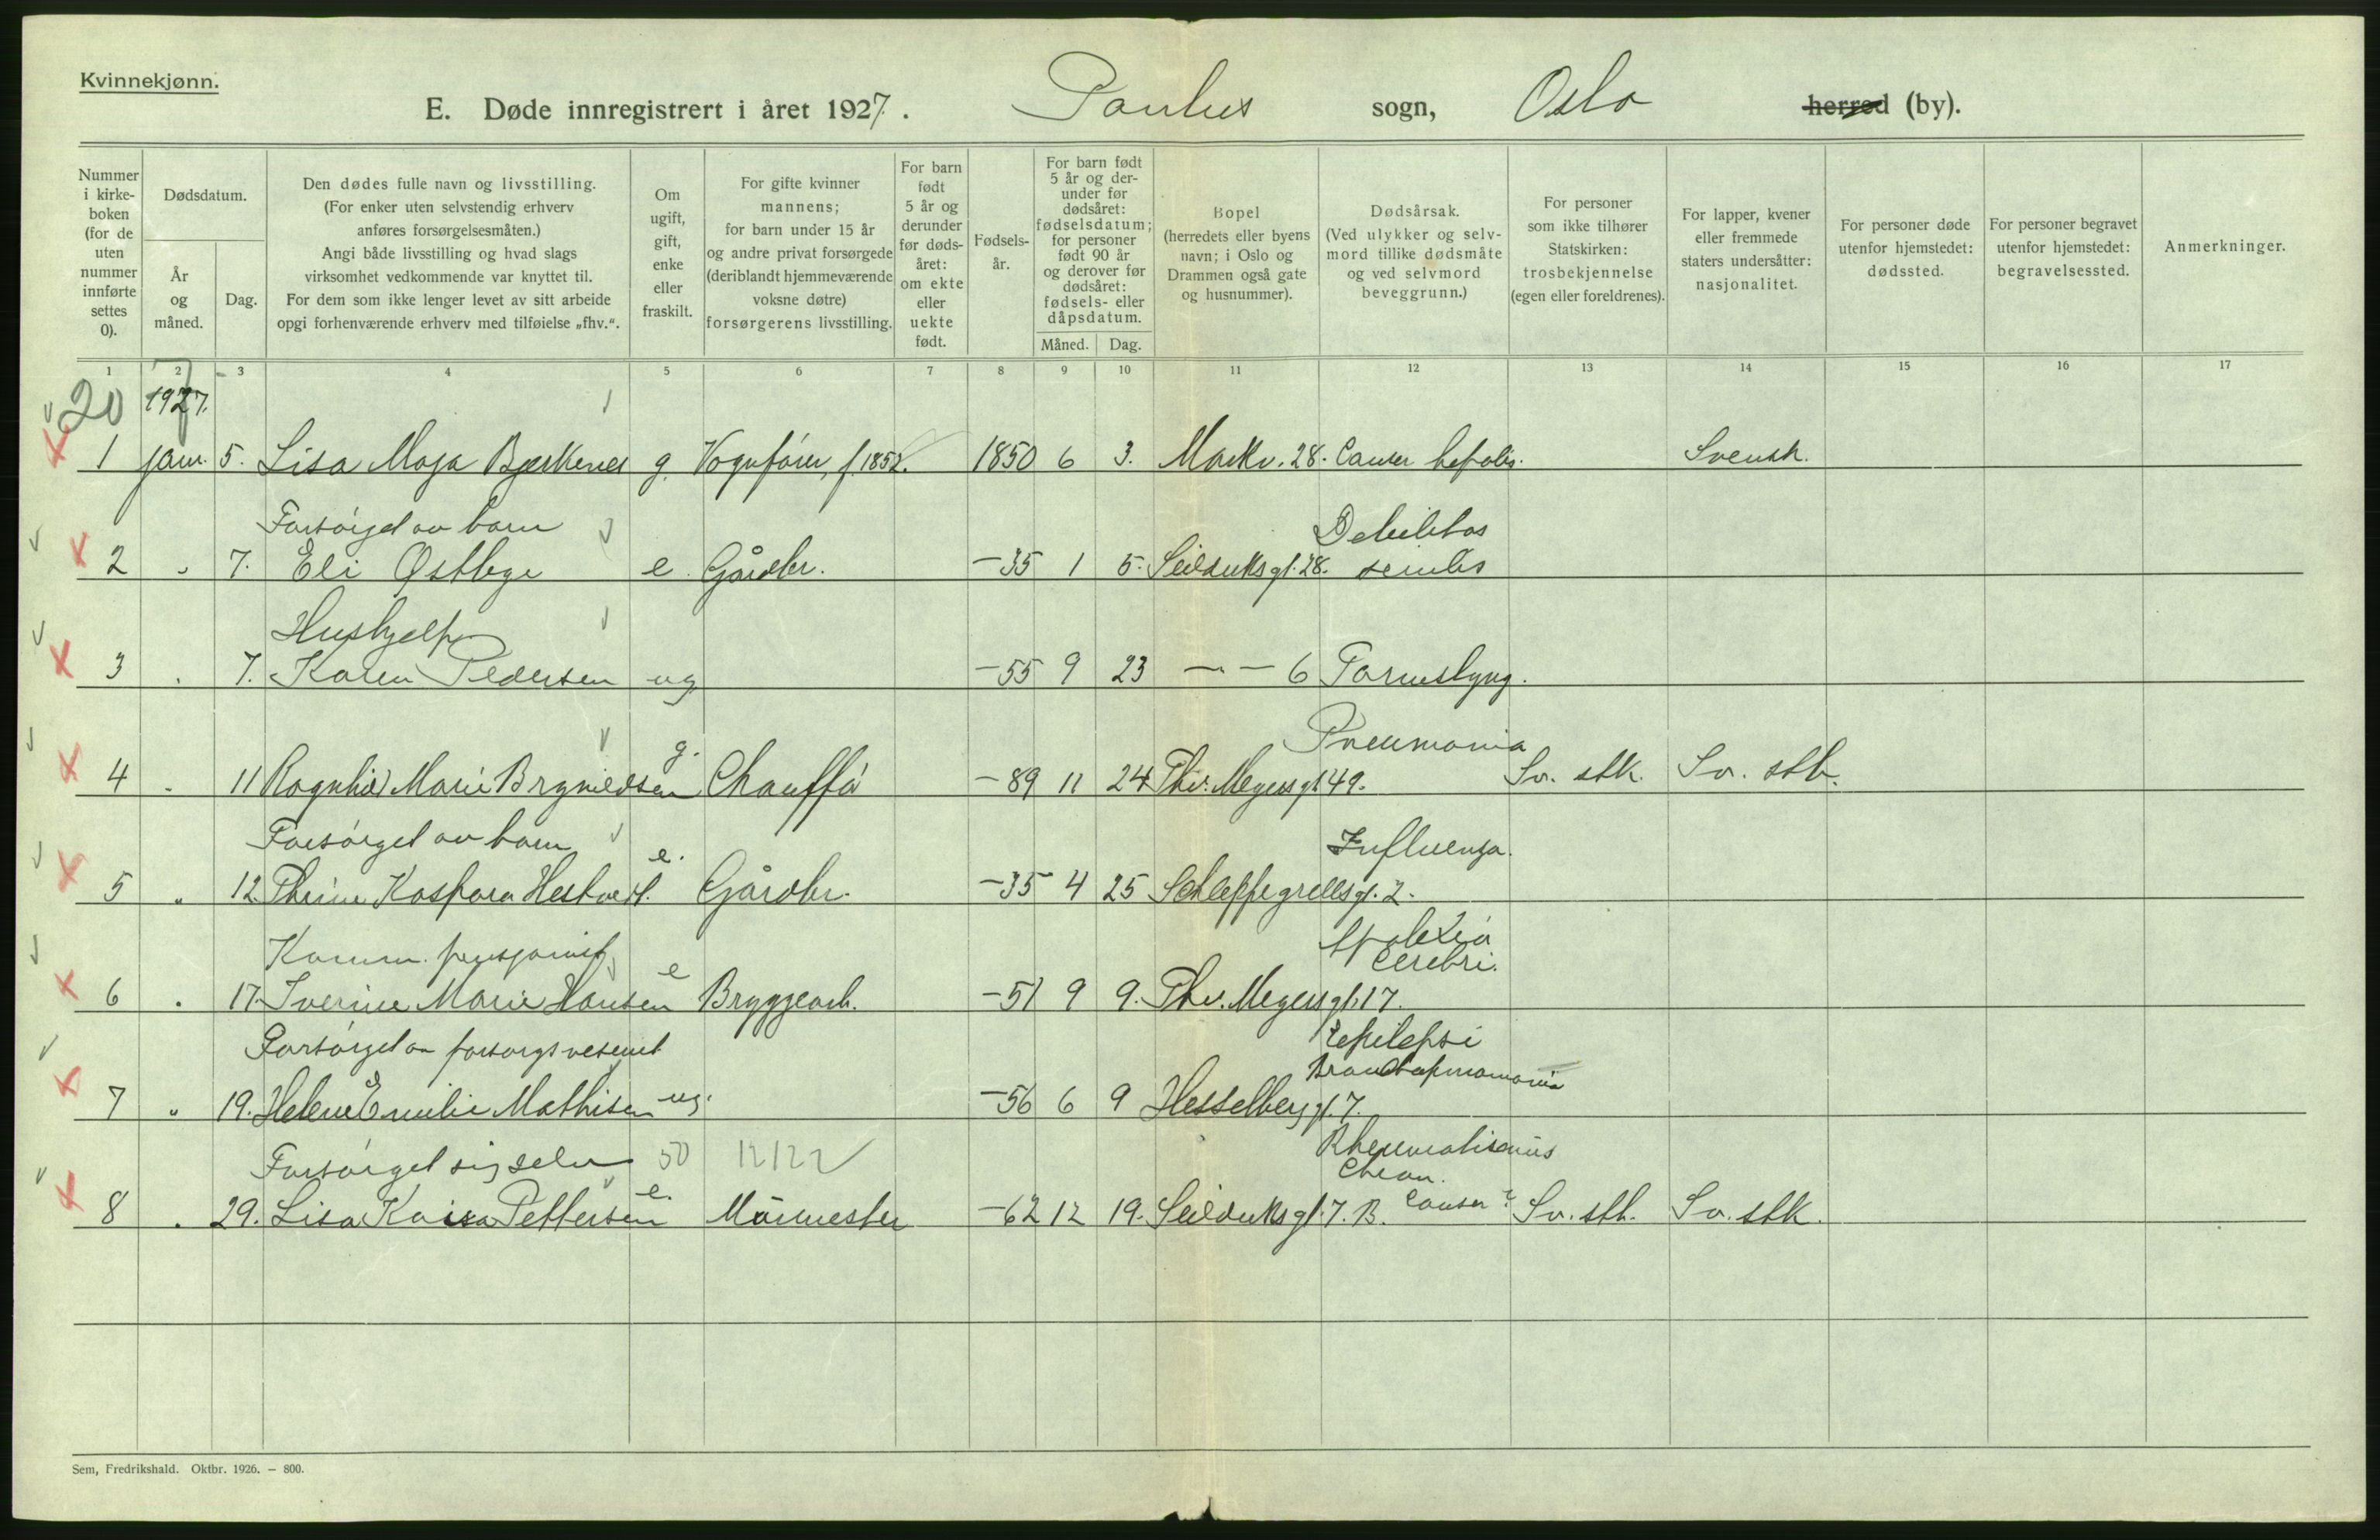 Kvinnekjønn.
E. Døde innregistrert i året 1927. Paulus sogn, Oslo herred (by).
Nummer i kirke-boken (for de uten nummer innførte settes 0).
Dødsdatum.
År og måned.
Dag.
Den dødes fulle navn og livsstilling.
(For enker uten selvstendig erhverv
anføres forsørgelsesmåten.)
Angi både livsstilling og hvad slags
virksomhet vedkommende var knyttet til.
For dem som ikke lenger levet av sitt arbeide
opgi forhenværende erhverv med tilføielse „fhv.“.
Om ugift, gift, enke eller fraskilt.
For gifte kvinner
mannens;
for barn under 15 år
og andre privat forsørgede
(deriblandt hjemmeværende
voksne døtre)
forsørgerens livsstilling.
For barn født 5 år og derunder før døds-året: om ekte eller uekte født.
Fødsels-år.
For barn født 5 år og der-under før dødsåret: fødselsdatum; for personer født 90 år og derover før dødsåret: fødsels- eller dåpsdatum.
Måned.
Dag.
Bopel
(herredets eller byens
navn; i Oslo og
Drammen også gate
og husnummer).
Dødsårsak.
(Ved ulykker og selv-
mord tillike dødsmåte
og ved selvmord
beveggrunn.)
For personer
som ikke tilhører
Statskirken:
trosbekjennelse
(egen eller foreldrenes).
For lapper, kvener
eller fremmede
staters undersåtter:
nasjonalitet.
For personer døde
utenfor hjemstedet:
dødssted.
For personer begravet
utenfor hjemstedet:
begravelsessted.
Anmerkninger.
1 2 3 4 5 6 7 8 9 10 11 12 13 14 15 16 17
20 1927.
1 Jan. 5. Lisa Maja g. Vognfører, f. 1852. 1850 6 3. Markv. 28. Cancer hepatis. Svensk.
Forsørget av barn Debilitas
2 " 7. Eli e. Gårdbr. -35 1 5. Seilduksgt. 28. senilis
Hushjelp
3 " 7. Karen Pedersen ug -55 9 23 - " - 6 Tarmslyng.
Pneumonia
4 " 11 Ragnhild Marie Brynildsen g. Chauffør -89 11 24 Thv. Meyersgt 49. Sv. stk. Sv. stk.
Forsørget av barn Influenza.
5 " 12. Kaspara e. Gårdbr. -35 4 25 Schleppegrellsgt. 2.
Komm. pensjonist Apolexia
Cerebri.
6 " 17. Iverine Marie Hansen e Bryggearb. -51 9 9. Thv. Meyersgt. 17.
Forsørget av forsorgsvesenet Epilepsi
7 " 19. Helene Emilie Mathisen ug. -56 6 9 Hesselbergsgt. 7.
Forsørget sig selv 50 12122 Rheumatismus
Chron.
8 " 29. Lisa Kaisa Pettersen e. Murmester -62 12 19. Seilduksgt. 7. B. Cancer? Sv. stk. Sv. stk.
Sem, Fredrikshald. Oktbr. 1926. — 800.